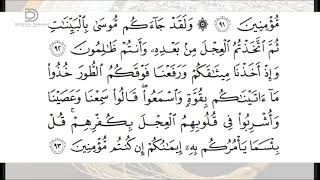 مُّؤْمِنِينَ ٩١ ۞ وَلَقَدْ جَآءَكُم مُّوسَىٰ بِٱلْبَيِّنَـٰتِ
ثُمَّ ٱتَّخَذْتُمُ ٱلْعِجْلَ مِنۢ بَعْدِهِۦ وَأَنتُمْ ظَـٰلِمُونَ ٩٢
وَإِذْ أَخَذْنَا مِيثَـٰقَكُمْ وَرَفَعْنَا فَوْقَكُمُ ٱلطُّورَ خُذُوا۟
مَآ ءَاتَيْنَـٰكُم بِقُوَّةٍ وَٱسْمَعُوا۟ ۖ قَالُوا۟ سَمِعْنَا وَعَصَيْنَا
وَأُشْرِبُوا۟ فِى قُلُوبِهِمُ ٱلْعِجْلَ بِكُفْرِهِمْ ۚ قُلْ
بِئْسَمَا يَأْمُرُكُم بِهِۦٓ إِيمَـٰنُكُمْ إِن كُنتُم مُّؤْمِنِينَ ٩٣